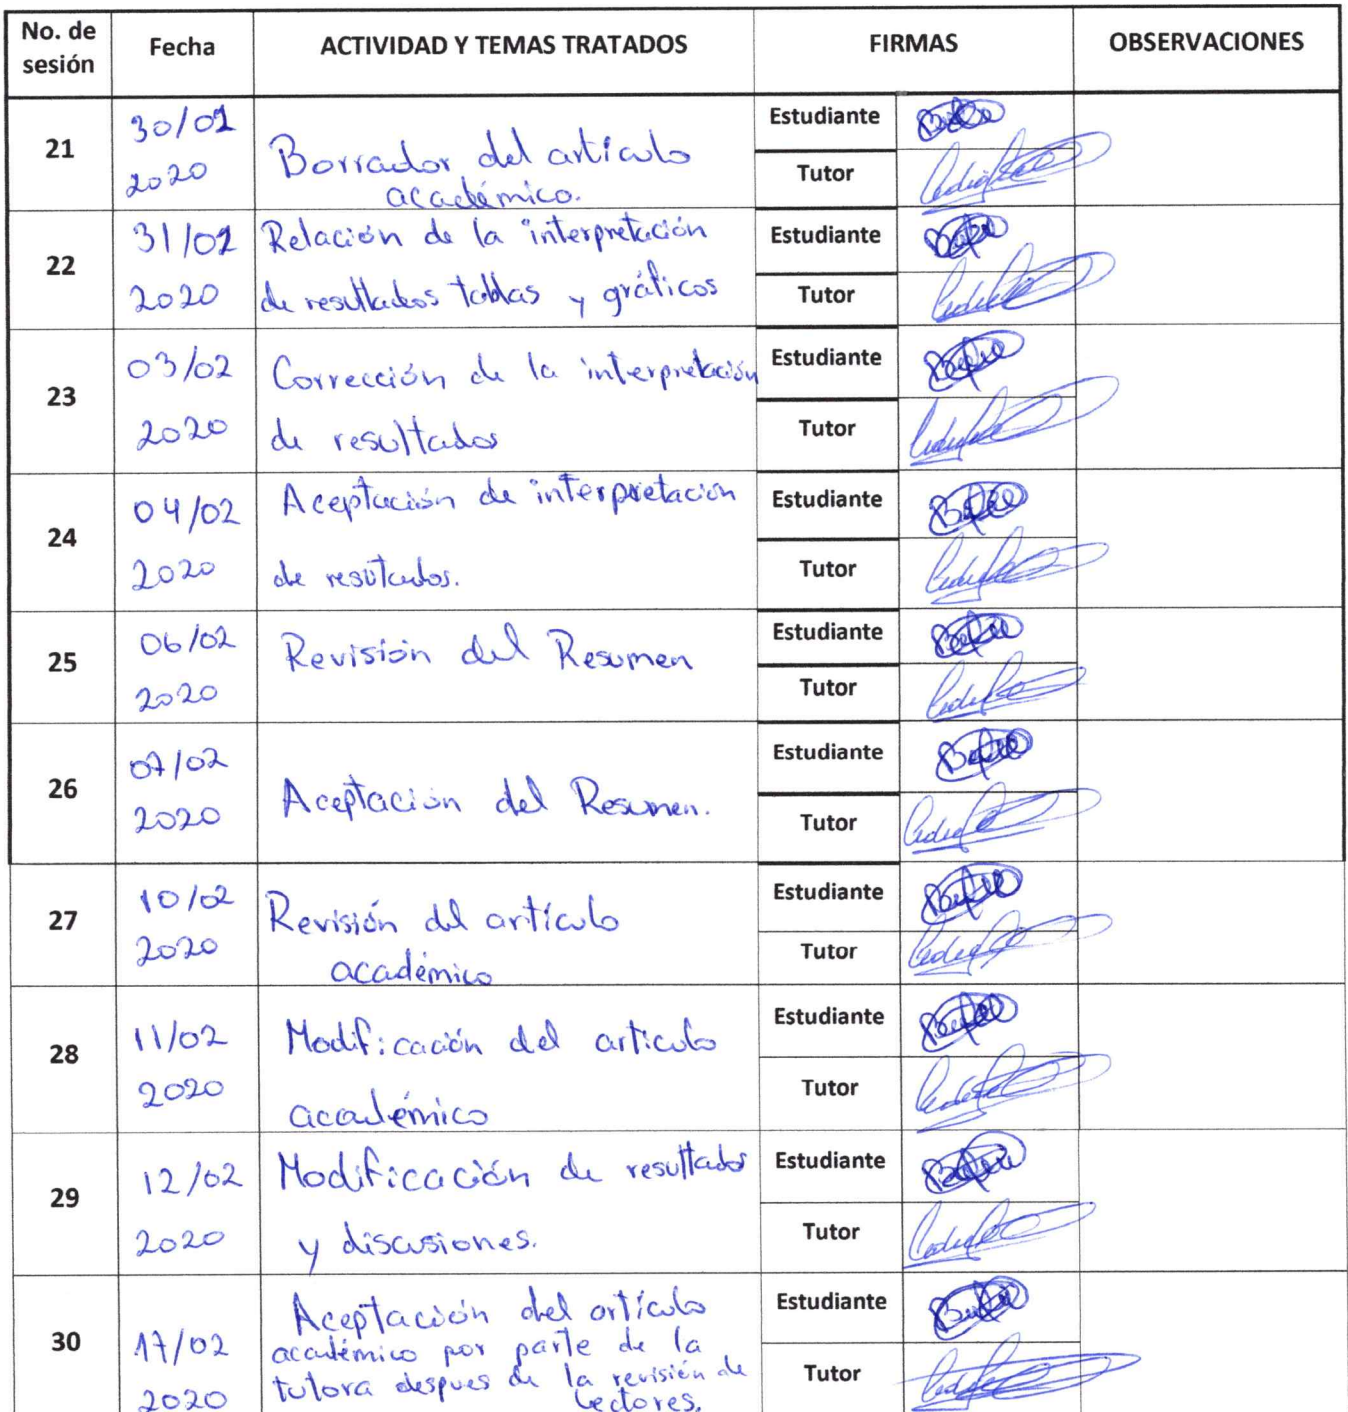 No. de sesión
Fecha
ACTIVIDAD Y TEMAS TRATADOS
FIRMAS
OBSERVACIONES
21
30/01
2020
Borrador del artículo
académico.
Estudiante
Tutor
22
31/01
2020
Relación de la interpretación
de resultados tablas y gráficos
Estudiante
Tutor
23
03/02
2020
Corrección de la interpretación
de resultados
Estudiante
Tutor
24
04/02
2020
Aceptación de interpretación
de resultados.
Estudiante
Tutor
25
06/02
2020
Revisión del Resumen
Estudiante
Tutor
26
07/02
2020
Aceptación del Resumen.
Estudiante
Tutor
27
10/02
2020
Revisión del artículo
académico
Estudiante
Tutor
28
11/02
2020
Modificación del articulo
académico
Estudiante
Tutor
29
12/02
2020
Modificación de resultados
y discusiones.
Estudiante
Tutor
30
17/02
2020
Aceptación del artículo
académico por parte de la
tutora despues de la revisión de
lectores.
Estudiante
Tutor